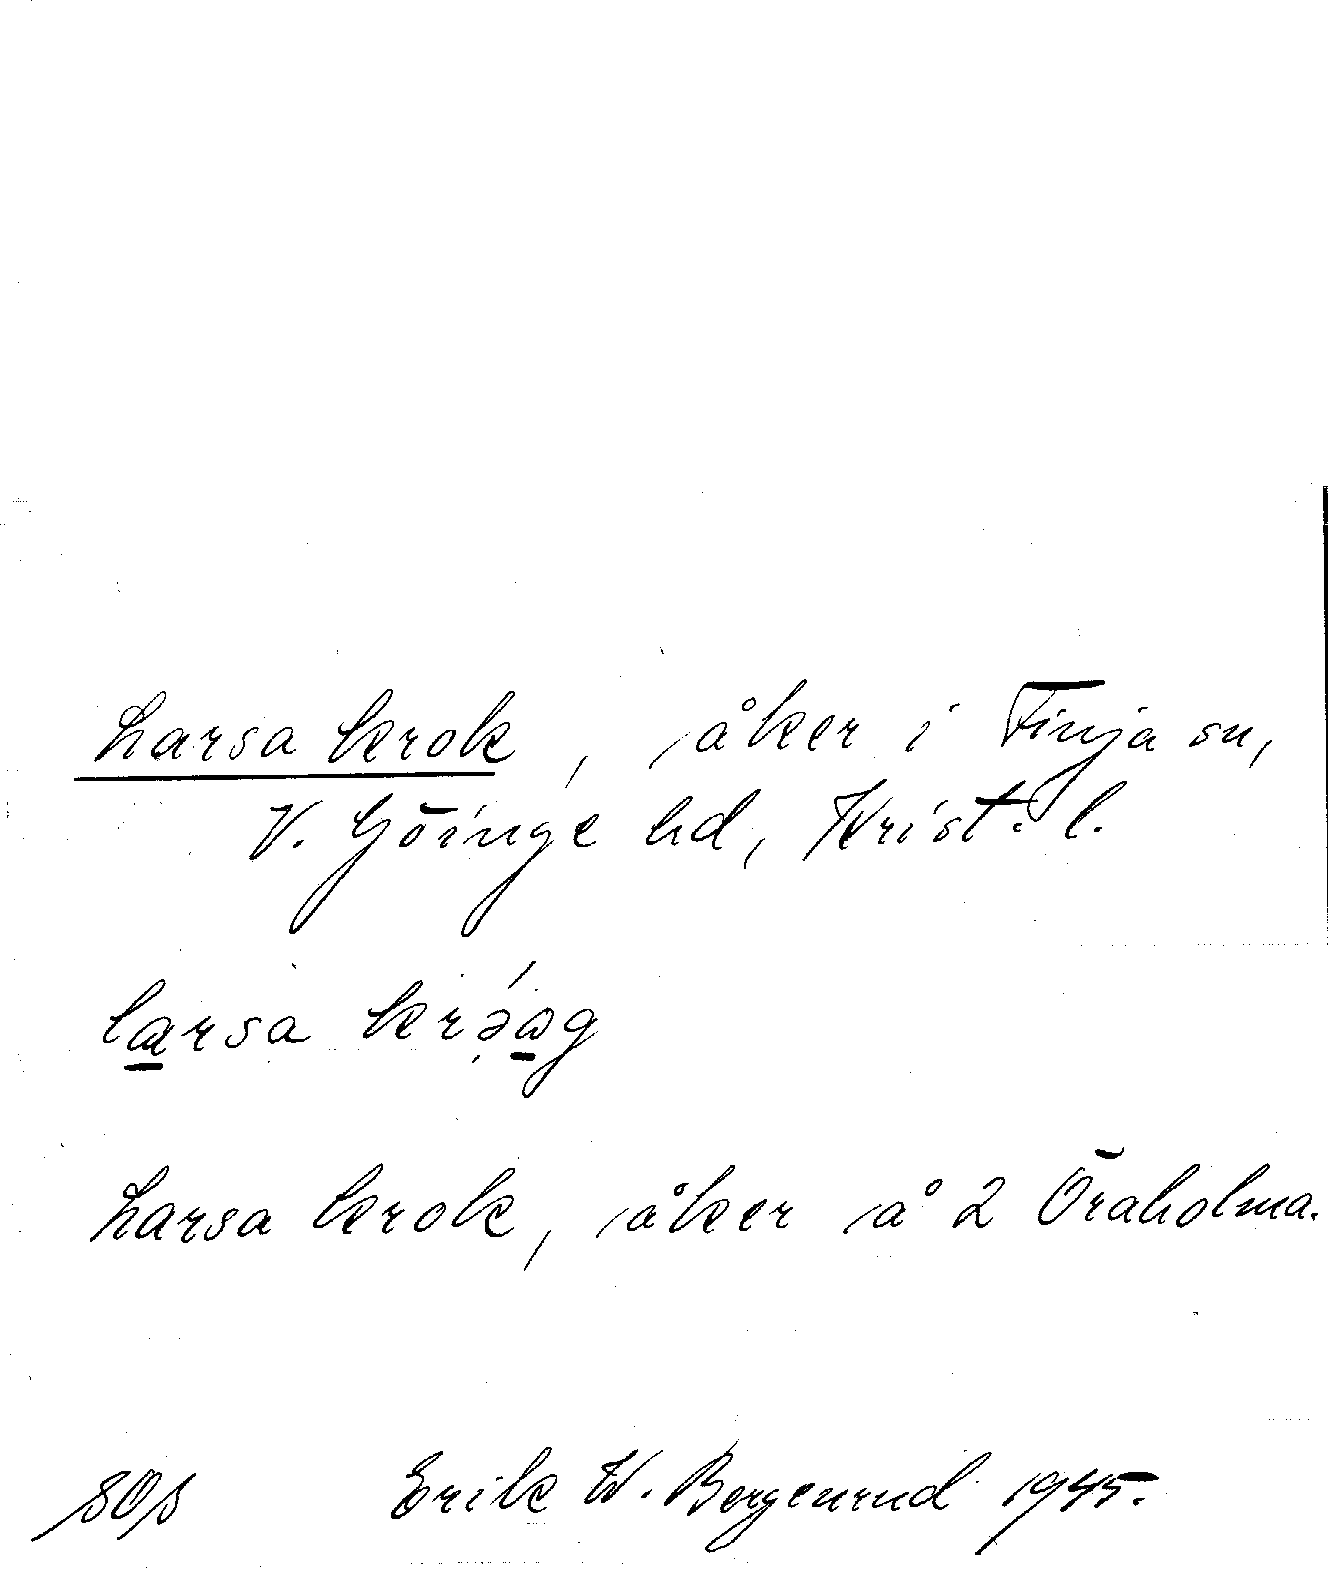 Larsa krok, åker i Finja sn,
V. Göinge hd, Krist. l.
larsa krəag
Larsa krok, åker å 2 Öraholma.
808 Erik W. Bergenrud 1945.